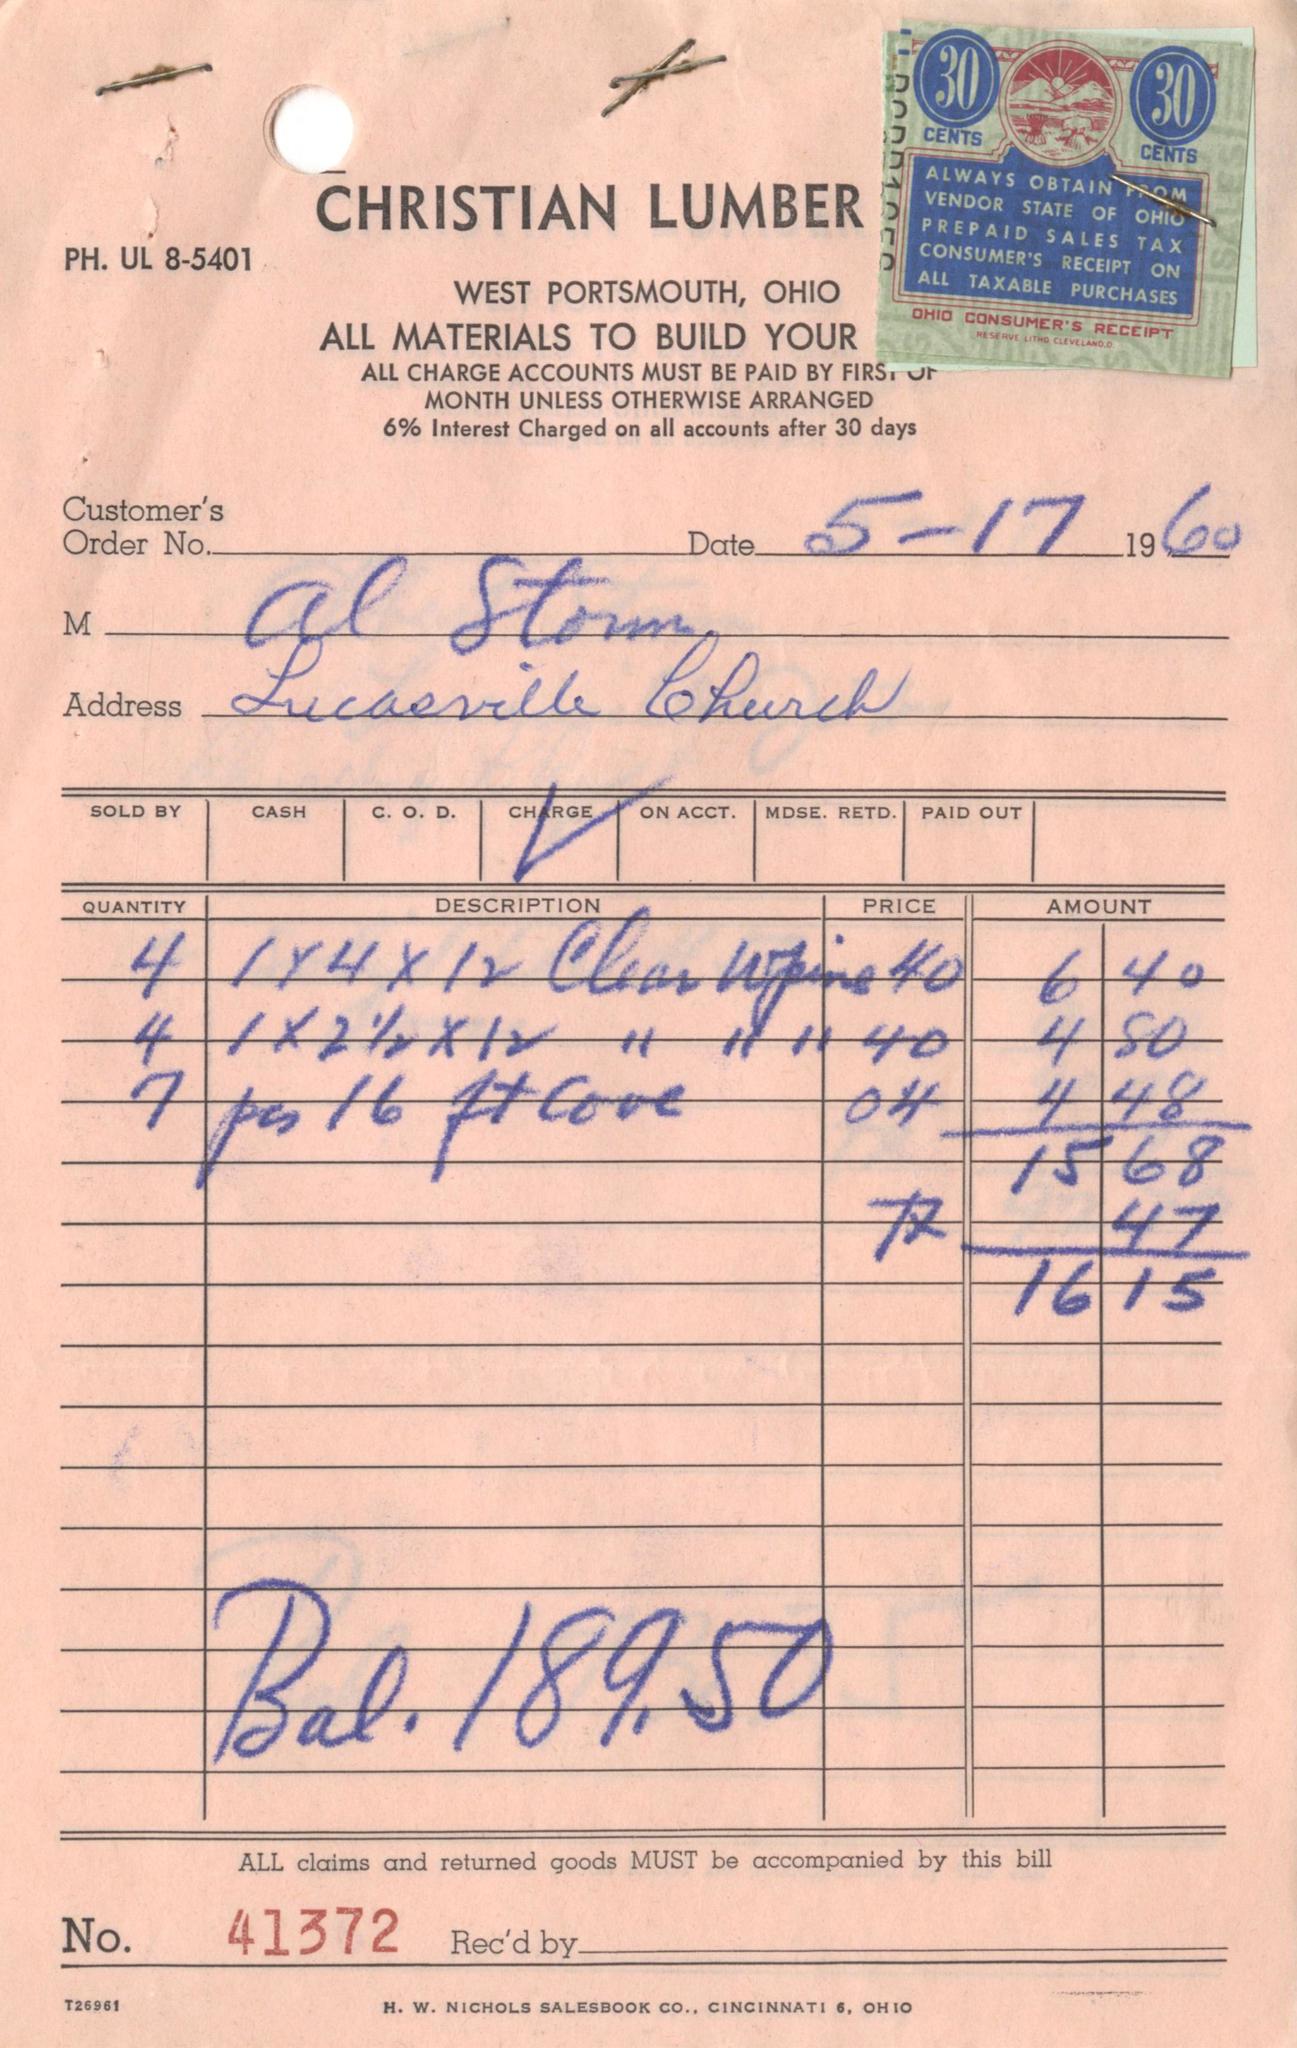 30 CENTS
30 CENTS
ALWAYS OBTAIN FROM
VENDOR STATE OF OHIO
PREPAID SALES TAX
CONSUMER'S RECEIPT ON
ALL TAXABLE PURCHASES
OHIO CONSUMER'S RECEIPT
RESERVE LITHO. CLEVELAND, O.
CHRISTIAN LUMBER
PH. UL 8-5401
WEST PORTSMOUTH, OHIO
ALL MATERIALS TO BUILD YOUR
ALL CHARGE ACCOUNTS MUST BE PAID BY FIRST OF
MONTH UNLESS OTHERWISE ARRANGED
6% Interest Charged on all accounts after 30 days
Customer's
Order No. Date 5-17 1960
M Al Storm
Address Lucasville Church
SOLD BY CASH C. O. D. CHARGE ON ACCT. MDSE. RETD. PAID OUT
QUANTITY DESCRIPTION PRICE AMOUNT
4 1 X 4 X 12 Clear W pine 40 6 40
4 1 X 2 1/2 X 12 " " " 40 4 80
7 pcs 16 ft Cove 04 4 48
15 68
TX 47
16 15
Bal. 189.50
ALL claims and returned goods MUST be accompanied by this bill
No. 41372 Rec'd by
T26961 H. W. NICHOLS SALESBOOK CO., CINCINNATI 6, OHIO